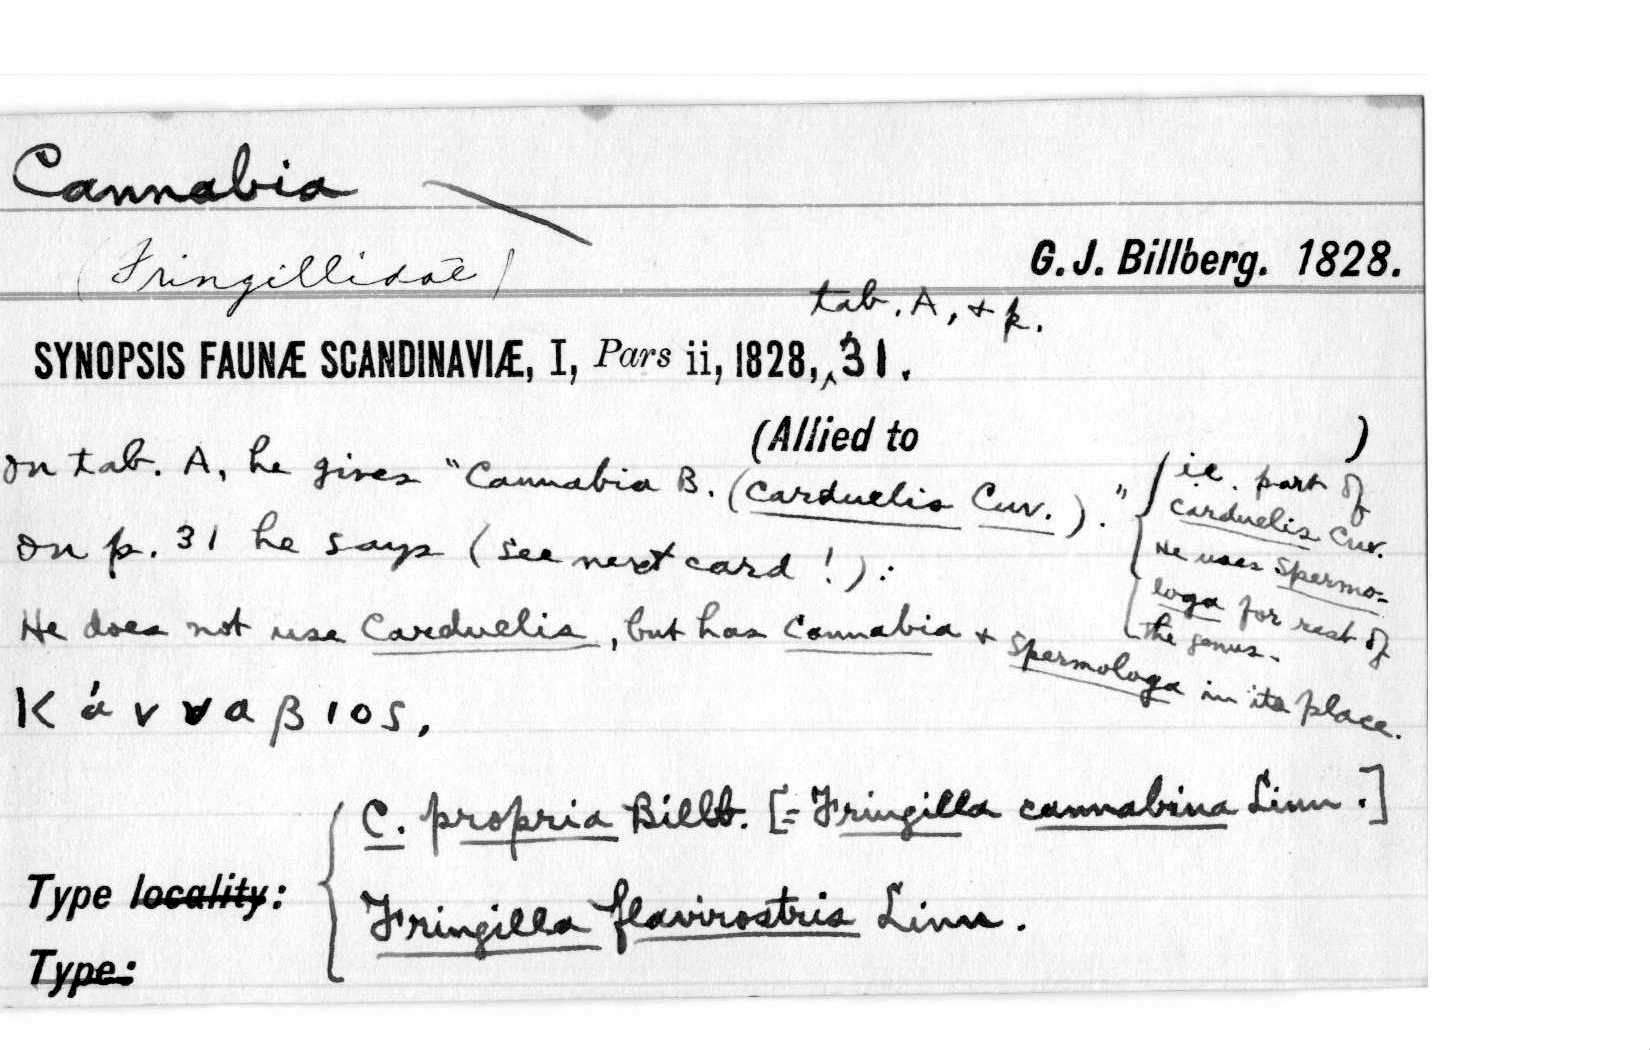 Cannabia
(Fringillidae)
G. J. Billberg. 1828.
tab. A, + p.
SYNOPSIS FAUNÆ SCANDINAVIÆ, I, Pars ii, 1828, 31.
(Allied to )
On tab. A, he gives "Cannabia B. (Carduelis Cuv.)."
i.e. part of
Carduelis Cuv.
He uses Spermo-
loga for rest of
the genus.
On p. 31 he says (see next card!):
He does not use Carduelis, but has Cannabia + Spermologa in its place.
Κάνναβιος,
C. propria Billb. [= Fringilla cannabina Linn.]
Type locality:
Fringilla flavirostris Linn.
Type: